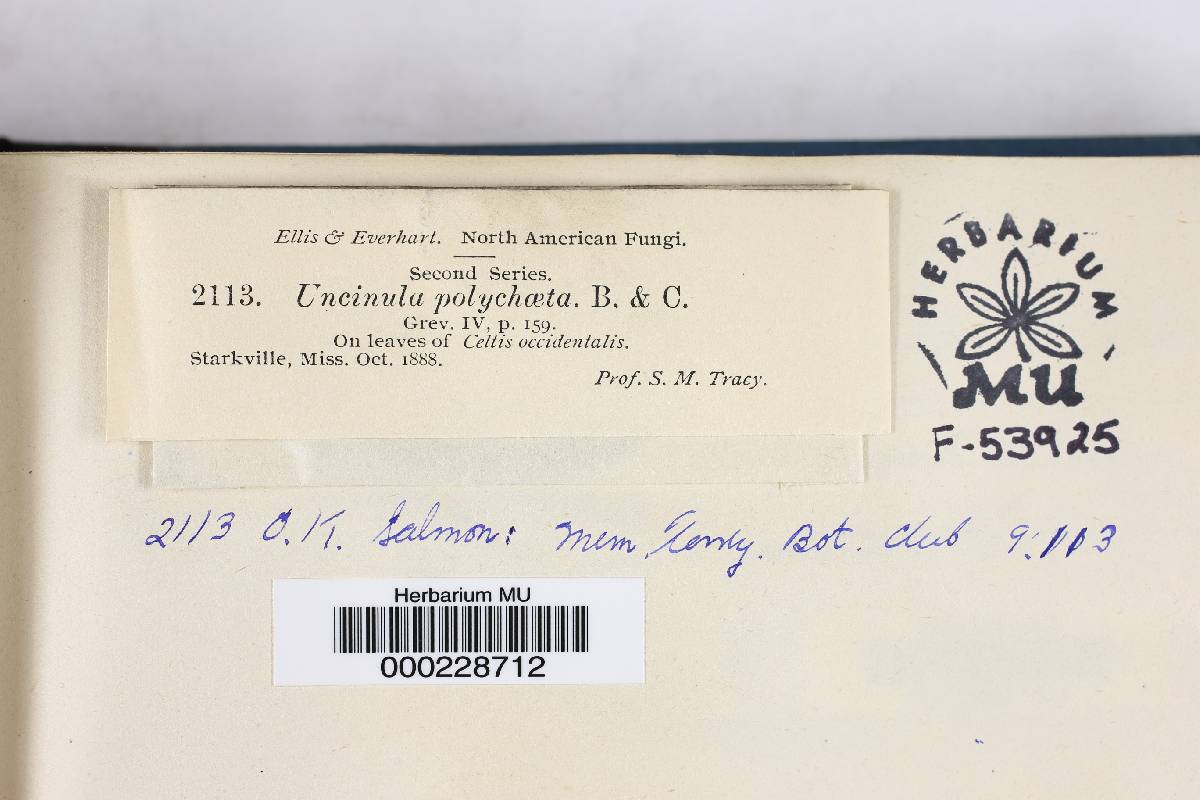 Ellis & Everhart. North American Fungi.
Second Series.
2113. Uncinula polychæta. B. & C.
Grev. IV, p. 159.
On leaves of Celtis occidentalis.
Starkville, Miss. Oct. 1888.
Prof. S. M. Tracy.
HERBARIUM
MU
F-53925
2113 O.K. Salmon: Mem. Torrey. Bot. Club 9:113
Herbarium MU
000228712